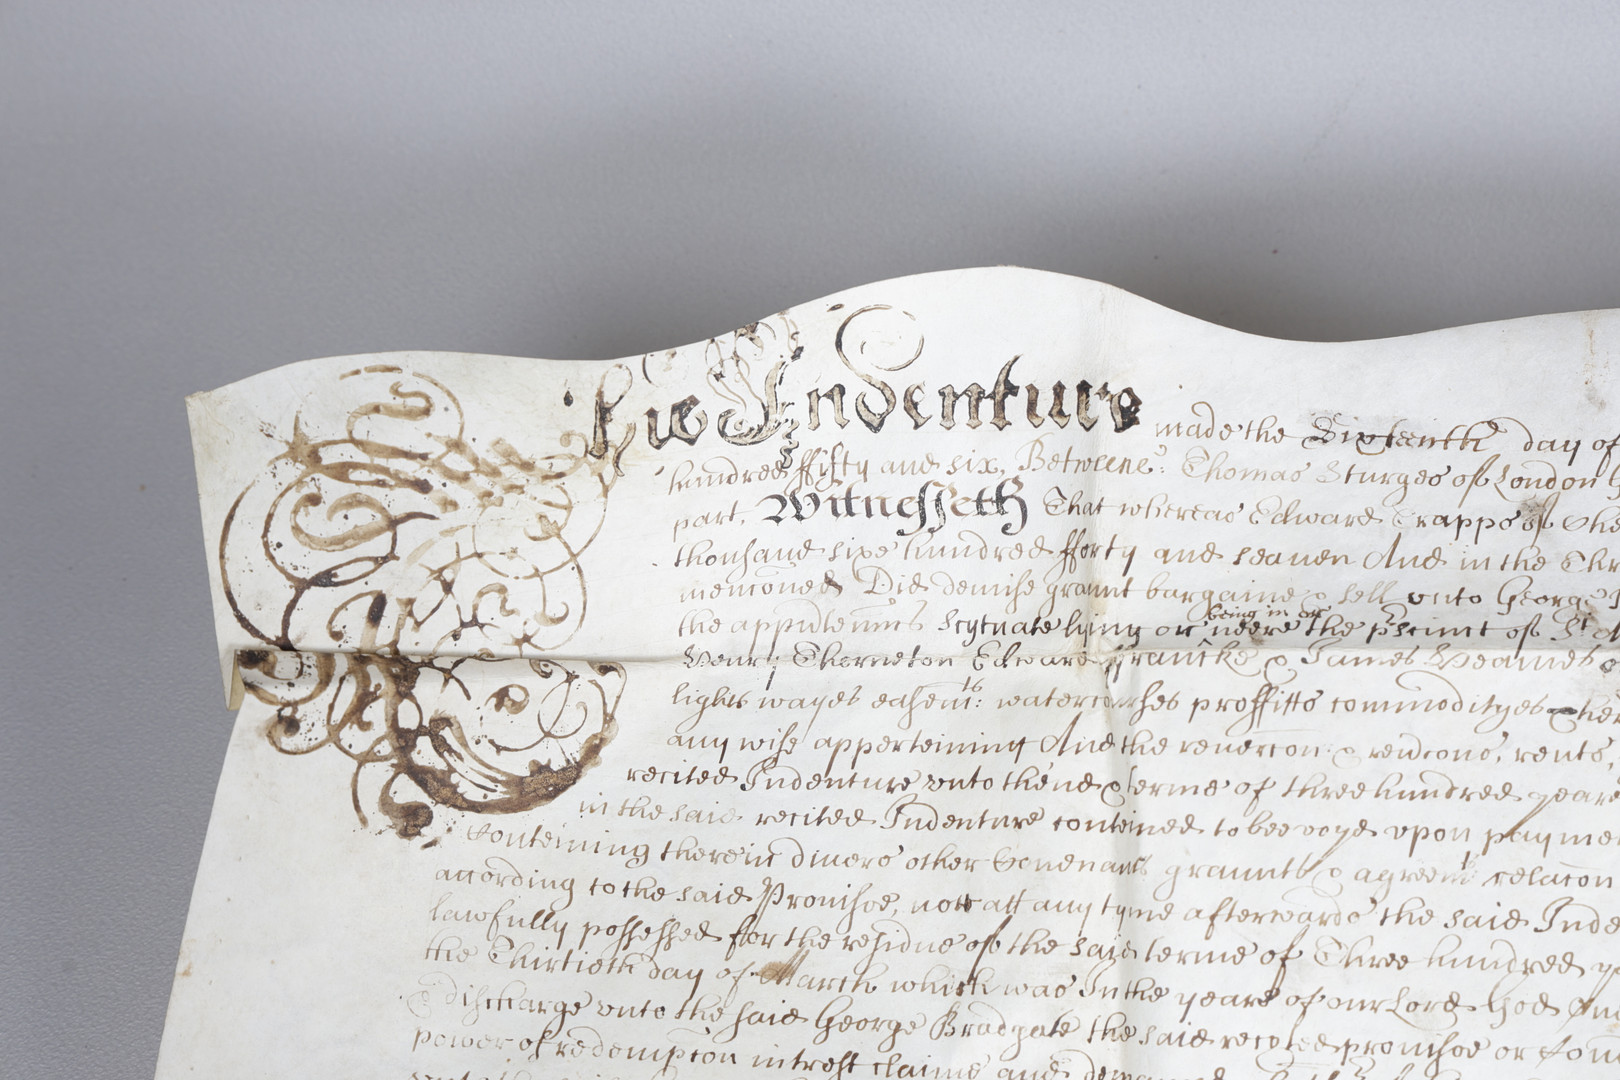 This Indenture made the Sixteenth day of
hundred ffifty and six, Betweene: Thomas Sturges of London
part, Witnesseth That whereas Edward Trapps of the
thousand sixe hundred fforty and seaven And in the
menc̃oned Did demise graunt bargaine & sell vnto George
the appꝛtenñcs Scytuate lying or being in or neere the pꝛcinct of St
Henry Thorneton Edward ffrancke & James Hearnes
lights wayes easemts: watercourses proffitts commodityes
any wise apperteining And the reverc̃on: & revercons, rents,
recited Indenture vnto thend & terme of three hundred yeare
in the said recited Indenture conteined to bee voyd vpon paymen
Conteining therein divers other Covenants graunts & agreemts relac̃on
according to the said Provisoe, nor att any tyme afterwards the said Inde
lawfully possessed ffor the residue of the said terme of Three hundred
the Thirtieth day of March which was In the yeare of our Lord God
& discharge vnto the said George Bradgate the said recyted provisoe or
power of redempc̃on intrest claime and demand